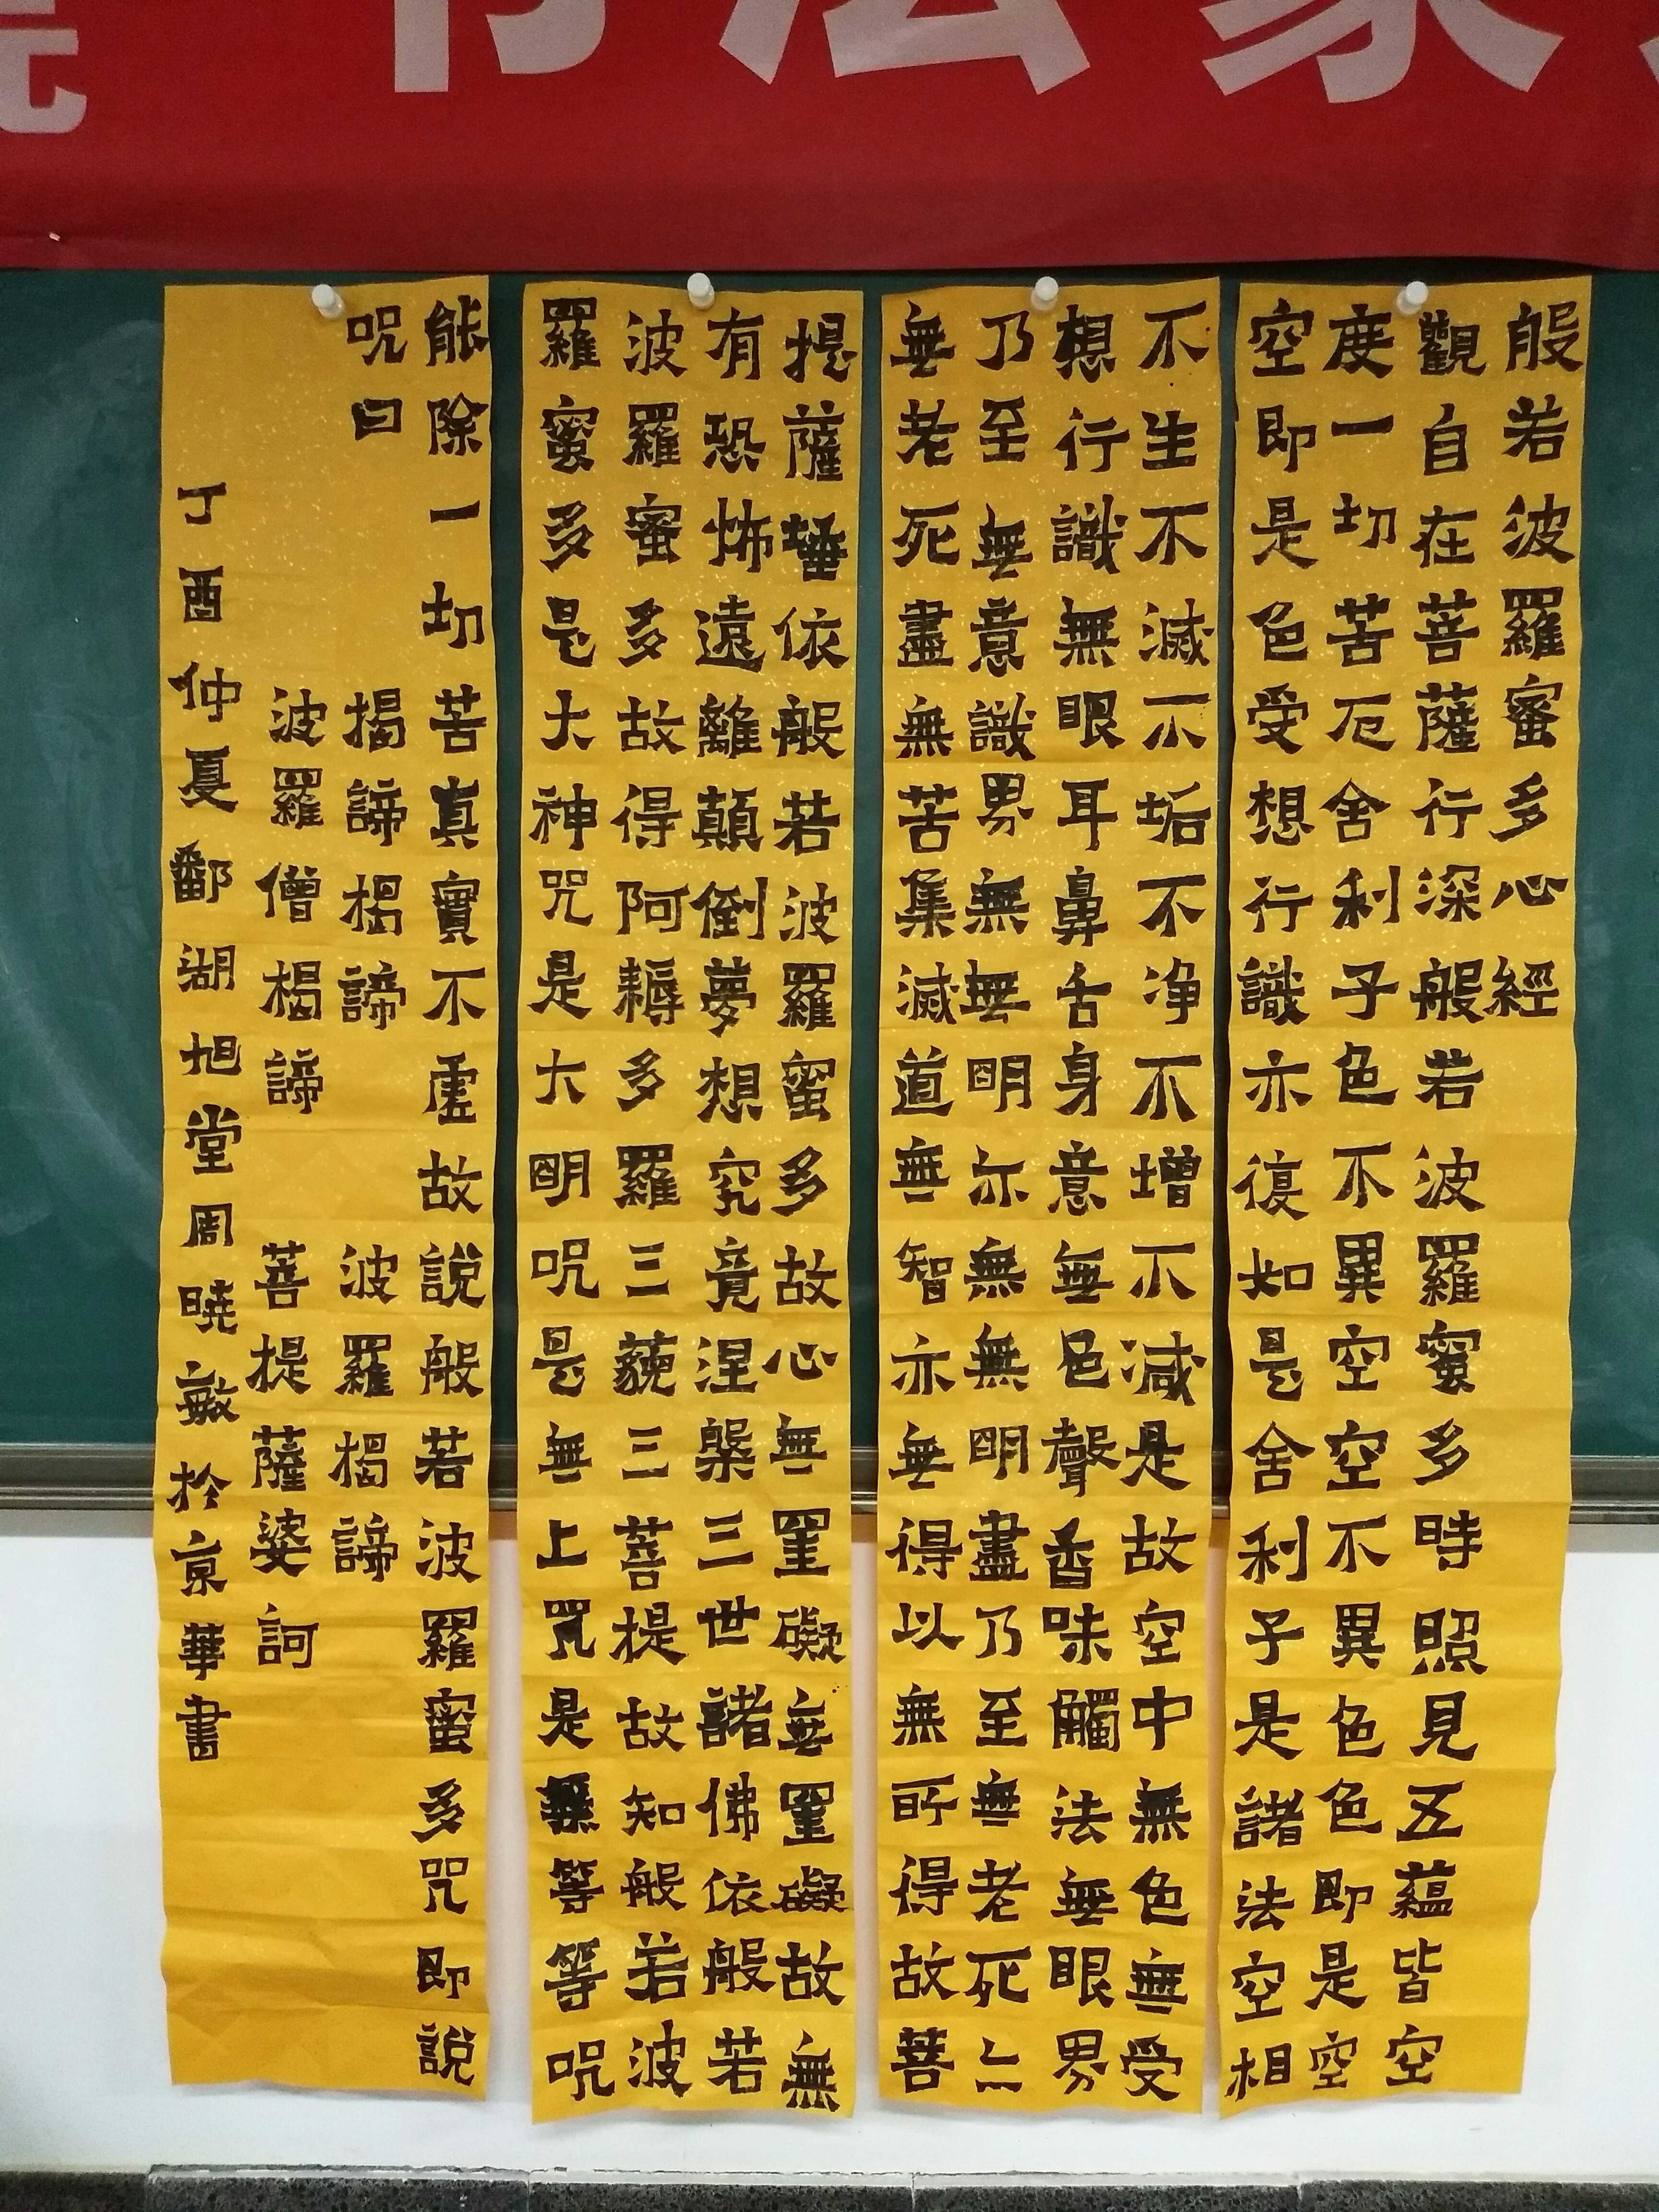 法家
般若波羅蜜多心經
觀自在菩薩行深般若波羅蜜多時照見五蘊皆空
度一切苦厄舍利子色不異空空不異色色即是空
空即是色受想行識亦復如是舍利子是諸法空相
不生不滅不垢不净不增不減是故空中無色無受
想行識無眼耳鼻舌身意無色聲香味觸法無眼界
乃至無意識界無無明亦無無明盡乃至無老死亦
無老死盡無苦集滅道無智亦無得以無所得故菩
提薩埵依般若波羅蜜多故心無罣礙無罣礙故無
有恐怖遠離顛倒夢想究竟涅槃三世諸佛依般若
波羅蜜多故得阿耨多羅三藐三菩提故知般若波
羅蜜多是大神咒是大明咒是無上咒是無等等咒
能除一切苦真實不虛故說般若波羅蜜多咒即說
咒曰 揭諦揭諦 波羅揭諦
波羅僧揭諦 菩提薩婆訶
丁酉仲夏鄱湖旭堂周曉敏於京華書